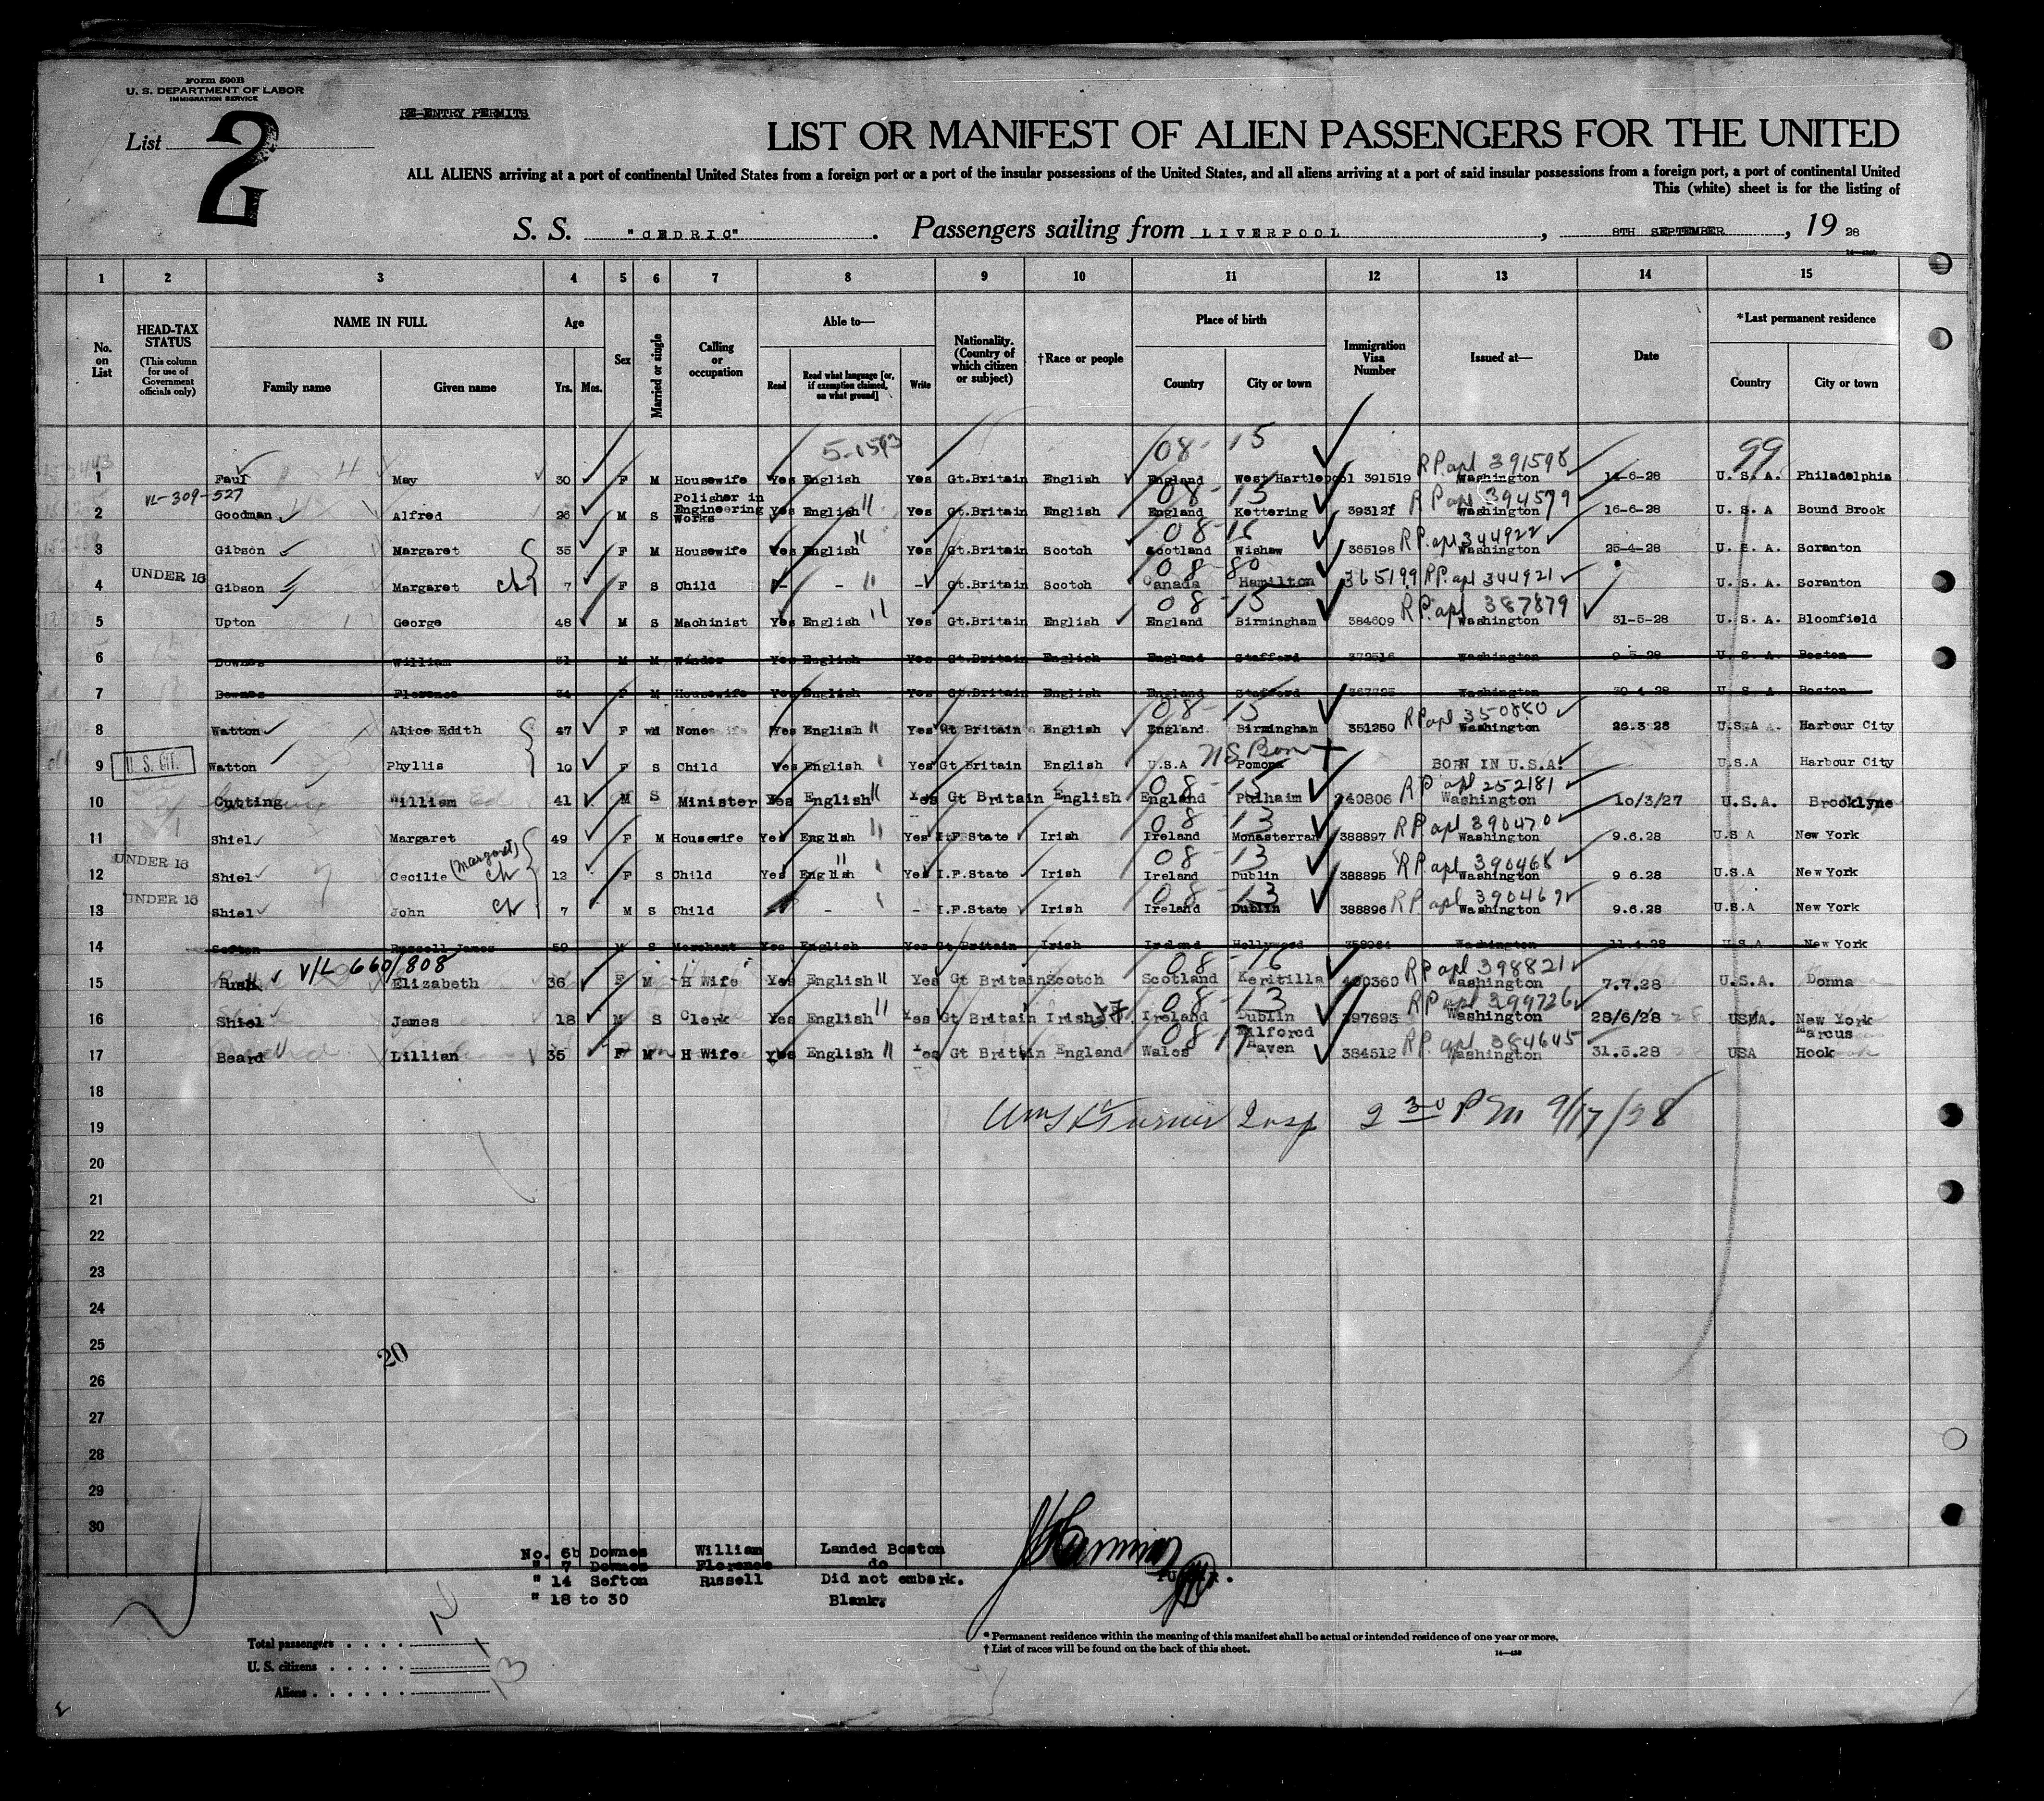 Form 500B
U. S. DEPARTMENT OF LABOR
IMMIGRATION SERVICE
RE-ENTRY PERMITS
List 2
LIST OR MANIFEST OF ALIEN PASSENGERS FOR THE UNITED
ALL ALIENS arriving at a port of continental United States from a foreign port or a port of the insular possessions of the United States, and all aliens arriving at a port of said insular possessions from a foreign port, a port of continental United
This (white) sheet is for the listing of
S. S. "CEDRIC" . Passengers sailing from LIVERPOOL , 8TH SEPTEMBER , 19 28
1 2 3 4 5 6 7 8 9 10 11 12 13 14 15
No. on List
HEAD-TAX STATUS
(This column for use of Government officials only)
NAME IN FULL
Family name
Given name
Age
Yrs. Mos.
Sex
Married or single
Calling or occupation
Able to—
Read
Read what language [or, if exemption claimed, on what ground]
Write
Nationality. (Country of which citizen or subject)
†Race or people
Place of birth
Country
City or town
Immigration Visa Number
Issued at—
Date
*Last permanent residence
Country
City or town
08-15 RP apl 391598 99
1 Paul May 30 F M Housewife Yes English Yes Gt.Britain English England West Hartlepool 391519 Washington 14-6-28 U. S. A. Philadelphia
VL-309-527 08-15 RP apl 394579
2 Goodman Alfred 26 M S Polisher in Engineering Works Yes English " Yes Gt.Britain English England Kettering 39312f Washington 16-6-28 U. S. A Bound Brook
08-16 RP apl 344922
3 Gibson Margaret 35 F M Housewife Yes English " Yes Gt.Britain Scotch Scotland Wishaw 365198 Washington 25-4-28 U. S. A. Scranton
UNDER 16 08-80
4 Gibson Margaret ch 7 F S Child - - " - Gt.Britain Scotch Canada Hamilton 365199 RP. apl 344921 U. S. A. Scranton
08-15 RP. apl 387879
5 Upton George 48 M S Machinist Yes English " Yes Gt.Britain English England Birmingham 384609 Washington 31-5-28 U. S. A. Bloomfield
6 Downes William 31 M M Winder Yes English Yes Gt.Britain English England Stafford 372516 Washington 9-5-28 U. S. A. Boston
7 Downes Florence 34 F M Housewife Yes English Yes Gt.Britain English England Stafford Washington 30-4-28 U S A Boston
08-15 RP apl 350880
8 Watton Alice Edith 47 F wd None Yes English " Yes Gt Britain English England Birmingham 351250 Washington 26.3.28 U.S.A. Harbour City
U. S. CIT. US Born
9 Watton Phyllis 10 F S Child Yes English Yes Gt Britain English U.S.A Pomona BORN IN U.S.A. U.S.A Harbour City
08-15 RP apl 252181
10 Cutting William 41 M S Minister Yes English " Yes Gt Britain English England Pulhaim 240806 Washington 10/3/27 U.S.A. Brooklyne
08-13 RP apl 390470
11 Shiel Margaret 49 F M Housewife Yes English " Yes I.F.State Irish Ireland Monasterran 388897 Washington 9.6.28 U.S A New York
UNDER 16 (Margaret) 08-13 RP apl 390468
12 Shiel Cecilie ch 12 F S Child Yes English " Yes I.F.State Irish Ireland Dublin 388895 Washington 9 6.28 U.S.A New York
UNDER 16 08-13 RP apl 390469
13 Shiel John ch 7 M S Child - - I.F.State Irish Ireland Dublin 388896 Washington 9.6.28 U.S.A New York
14 Sefton Russell James 59 M S Merchant Yes English Yes Gt.Britain Irish Ireland Hollywood Washington 11.4.28 U.S.A New York
V/L 660/808 08-16 RP apl 398821
15 Rusk Elizabeth 36 F M H Wife Yes English " Yes Gt Britain Scotch Scotland Keritilla 400360 Washington 7.7.28 U.S.A. Donna
08-13 RP apl 399726
16 Shiel James 18 M S Clerk Yes English " Yes Gt Britain Irish Ireland Dublin 397693 Washington 28/6/28 USA. New York
08-17 RP apl 384645
17 Beard Lillian 35 F M H Wife Yes English " Yes Gt Britain England Wales Milfored Haven 384512 Washington 31.5.28 USA Marcus Hook
18
19 Insp 2 30 PM 9/17/28
20
21
22
23
24
25
20
26
27
28
29
30
No. 6b Downes William Landed Boston
" 7 Downes Florence do
" 14 Sefton Russell Did not embark.
" 18 to 30 Blank.
Total passengers
U. S. citizens
Aliens
* Permanent residence within the meaning of this manifest shall be actual or intended residence of one year or more.
† List of races will be found on the back of this sheet.